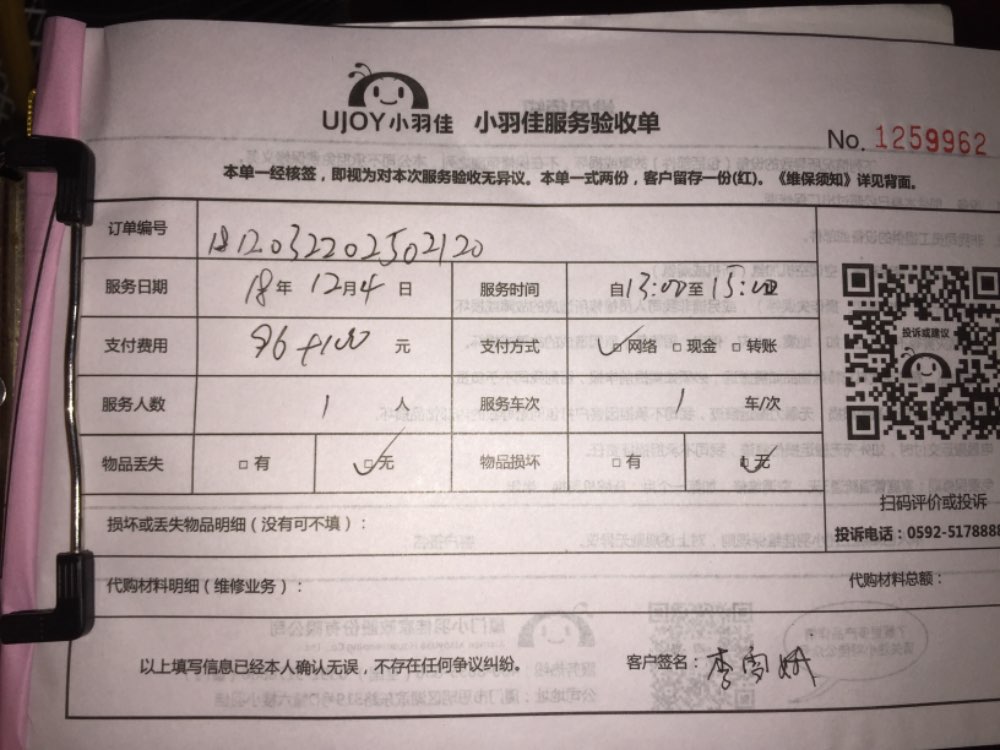 UJOY小羽佳 小羽佳服务验收单
No. 1259962
本单一经核签，即视为对本次服务验收无异议。本单一式两份，客户留存一份(红)。《维保须知》详见背面。
订单编号 1812032202502120
服务日期 18年 12月4 日 服务时间 自13:00至15:00
支付费用 96+100 元 支付方式 ☑网络 □现金 □转账
服务人数 1 人 服务车次 1 车/次
物品丢失 □有 ☑无 物品损坏 □有 ☑无
投诉或建议
扫码评价或投诉
投诉电话：0592-5178888
损坏或丢失物品明细（没有可不填）：
代购材料明细（维修业务）： 代购材料总额：
以上填写信息已经本人确认无误，不存在任何争议纠纷。 客户签名：李雪妍